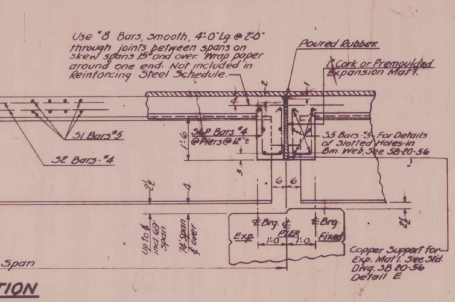 Use #8 Bars, Smooth, 4'-0" Lg @ 2'-0"
through joints between spans on
skew spans 15° and over. Wrap paper
around one end. Not included in
Reinforcing Steel Schedule.
Poured Rubber
1" Cork or Premoulded
Expansion Mat'l.
S1 Bars #5
S2 Bars #4
S6P Bars #4
@ Piers @ 12" ±
1'-6
S5 Bars #5. For Details
of Slotted Holes in
Bm. Web, See SB 20-56
6 6
2½
4
2½
Up to &
incl. 69'
span
70' Span
& over
℄ Brg.
℄ PIER
℄ Brg.
Exp.
1'-0
1'-0
Fixed
Copper Support for
Exp. Mat'l. See Std.
Dwg. SB 20-56
Detail E
Span
TION